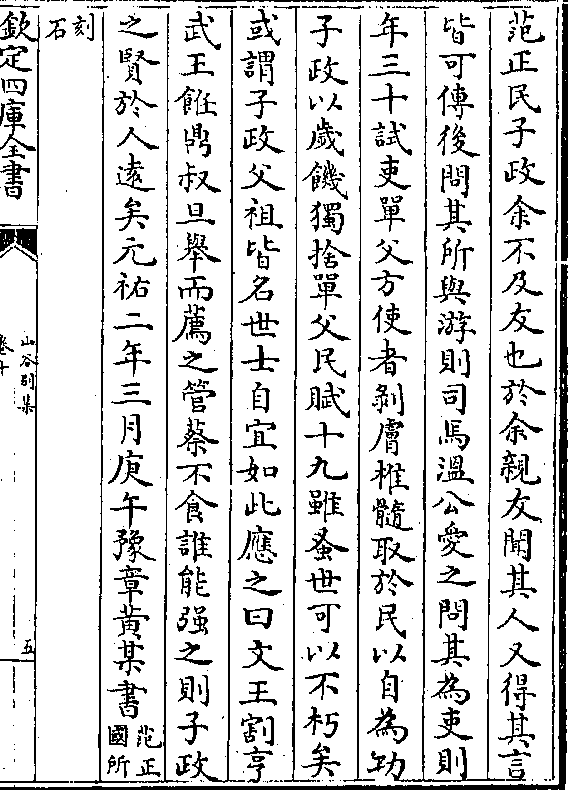 范正民子政余不及友也於余親友聞其人又得其言
皆可傳後問其所與游則司馬溫公愛之問其為吏則
年三十試吏單父方使者剝膚椎髓取於民以自為功
子政以歲饑獨捨單父民賦十九雖蚤世可以不朽矣
或謂子政父祖皆名世士自宜如此應之曰文王割亨
武王飪鼎叔旦舉而薦之管蔡不食誰能强之則子政
之賢於人遠矣元祐二年三月庚午豫章黃某書范正國所
刻石
欽定四庫全書
山谷别集
卷十
五